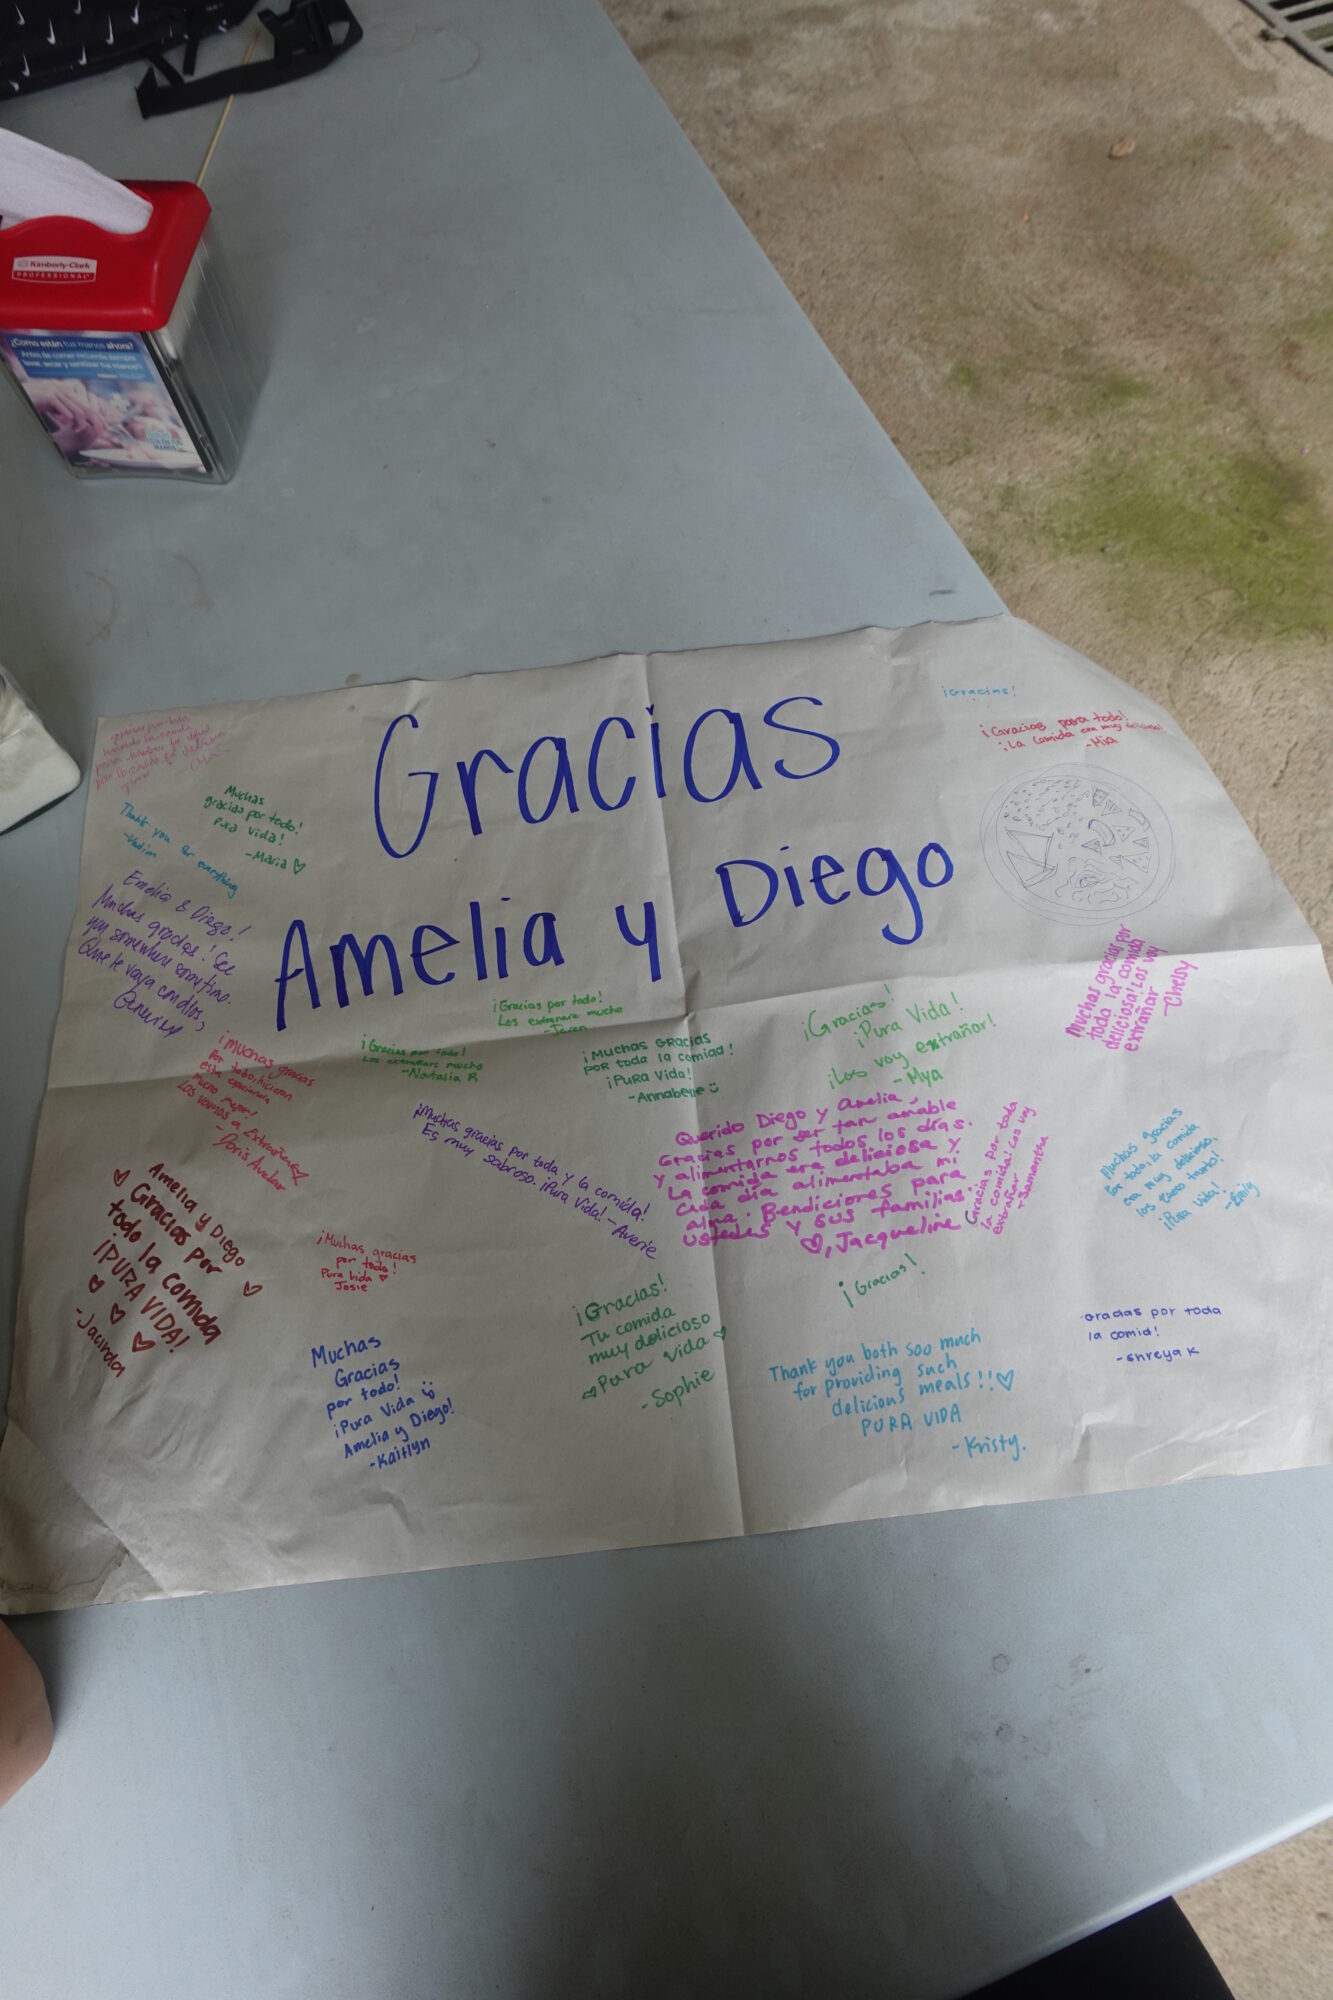 Kimberly-Clark
PROFESSIONAL
¿Cómo están tus manos ahora?
Antes de comer recuerda siempre
lavar, secar y sanitizar tus manos!!
Gracias
Amelia y Diego
¡Gracias!
¡Gracias para todo!
¡La comida era muy deliciosa!
-Mia
gracias por toda
Muchas
gracias por todo!
Pura vida!
-Maria
Thank you for everything
-Vadim
Emelia & Diego!
Muchas gracias! See
you somewhere sometime.
Que te vaya con dios,
¡Gracias por todo!
Los extrañare mucho
¡Gracias por todo!
Los extrañare mucho
-Natalia R
¡MUCHAS GRACIAS
POR toda la comiad!
¡PURA Vida!
-Annabelle
¡Gracias!
¡Pura Vida!
¡Los voy extrañar!
-Mya
Muchas gracias por
toda la comida
deliciosa! Los voy
extrañar
-Chelsy
¡Muchas gracias
por todo, hicieron
esta experiencia
mucho mejor!
Los vamos a Extrañar
-Doris Avelar
¡Muchas gracias por toda y la comida!
Es muy sabroso. ¡Pura Vida! -Averie
Querido Diego y Amelia,
Gracias por ser tan amable
y alimentarnos todos los días.
La comida era deliciosa y
cada día alimentaba mi
alma. Bendiciones para
ustedes y sus familias.
♡, Jacqueline
Gracias por toda
la comida! Los voy
extrañar
-Samantha
Muchas gracias
por todo, la comida
era muy delicioso.
los quiero tanto!
¡Pura Vida!
-Emily
Amelia y Diego
Gracias por
todo la comida
¡PURA VIDA!
-Jacinda
¡Muchas gracias
por todo!
Pura Vida
Josie
¡Gracias!
Tu comida
muy delicioso
Pura vida
-Sophie
¡Gracias!
Gracias por toda
la comid!
-Shreya K
Muchas
Gracias
por todo!
¡Pura Vida
Amelia y Diego!
-Kaitlyn
Thank you both soo much
for providing such
delicious meals!!♡
PURA VIDA
-Kristy.